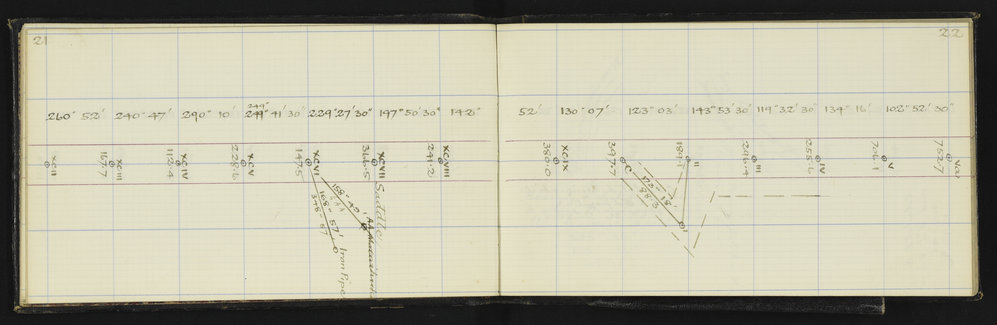 21
22
249°
260° 52' 240° 47' 290° 10' 249° 41' 30" 229° 27' 30" 197° 50' 30" 142°
52' 130° 07' 123° 03' 143° 53' 30" 119° 32' 30" 134° 16' 102° 52' 30"
XCII
167.7 XCIII
112.4 XCIV
228.6 XCV
147.5 XCVI
366.5 XCVII
241.2 XCVIII
380.0 XCIX
397.7 C
189.1
II
246.4 III
255.6 IV
706.1 V
752.7
158° 40'
168° 57'
Iron Pipe
Saddle
I